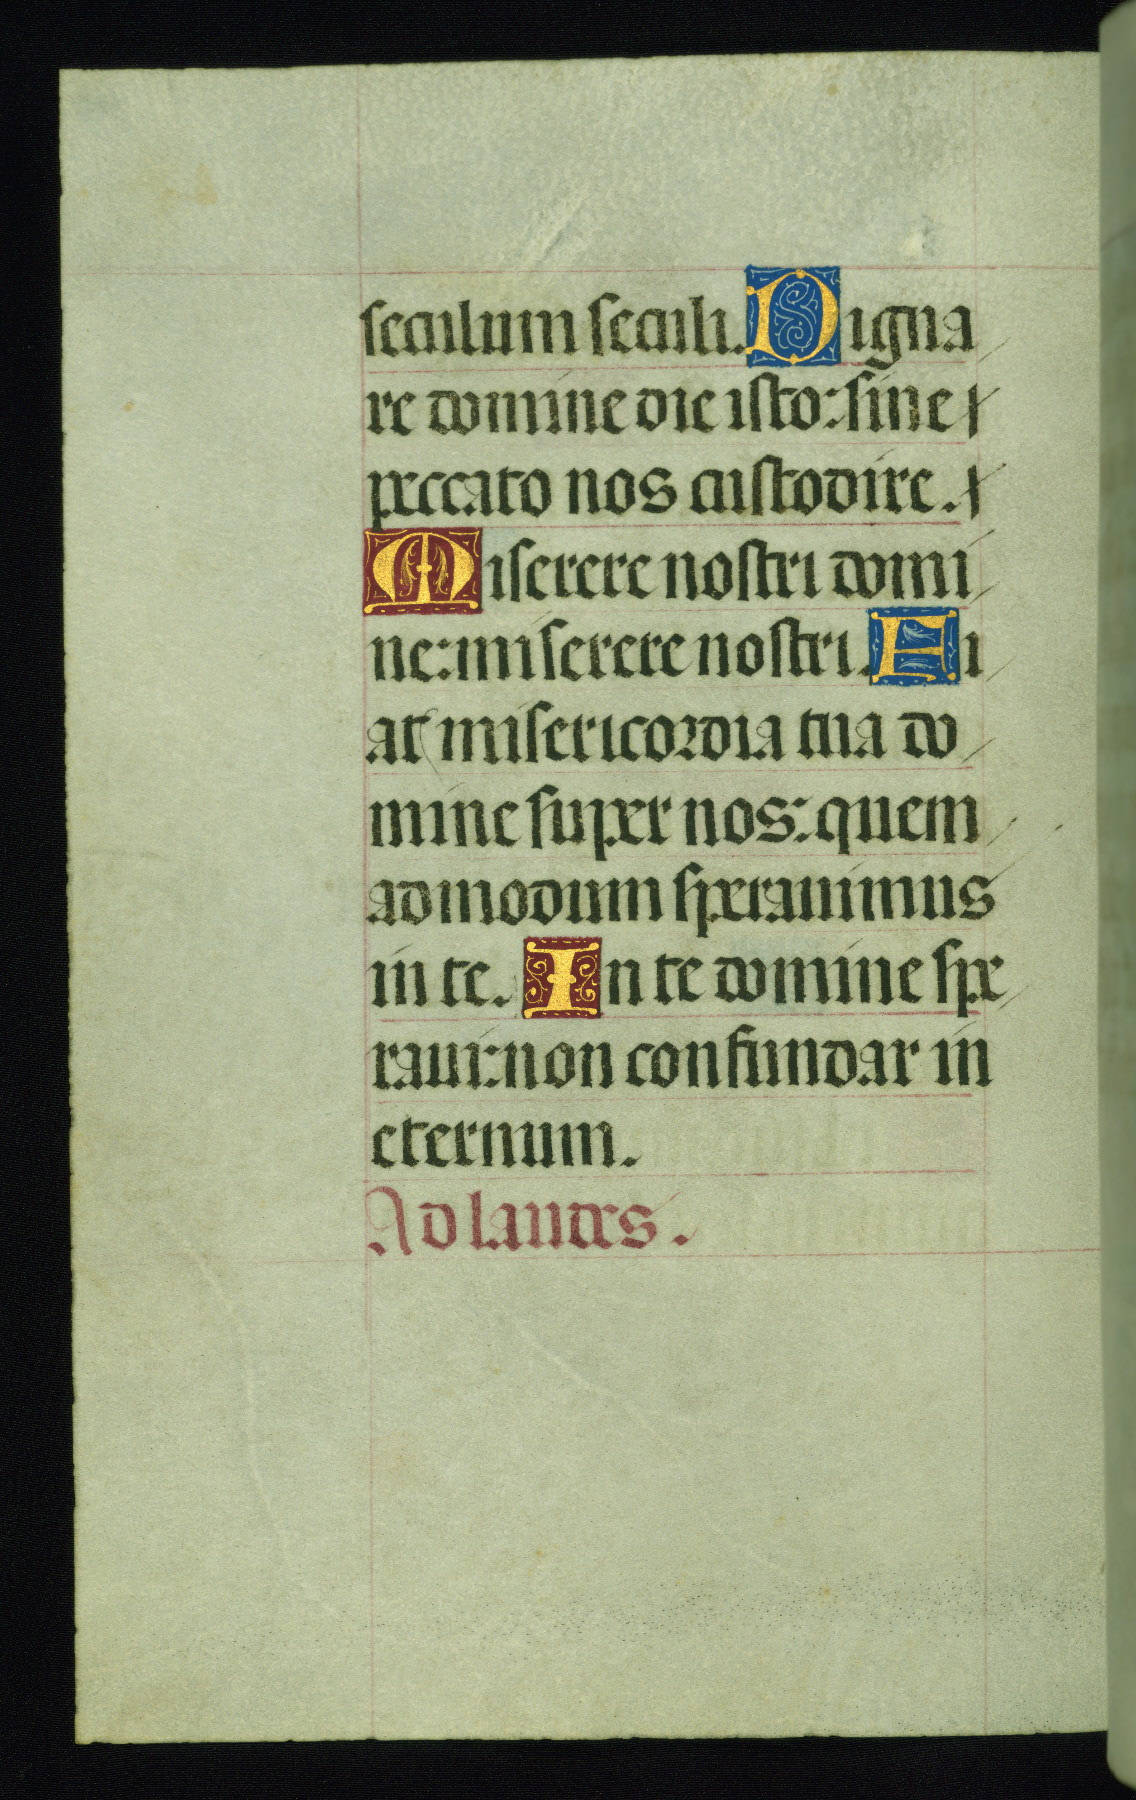 seculum seculi. Digna
re domine die isto: sine
peccato nos custodire.
Miserere nostri domi
ne: miserere nostri. Fi
at misericordia tua do
mine super nos: quem
admodum sperauimus
in te. In te domine spe
raui: non confundar in
eternum.
Ad laudes.